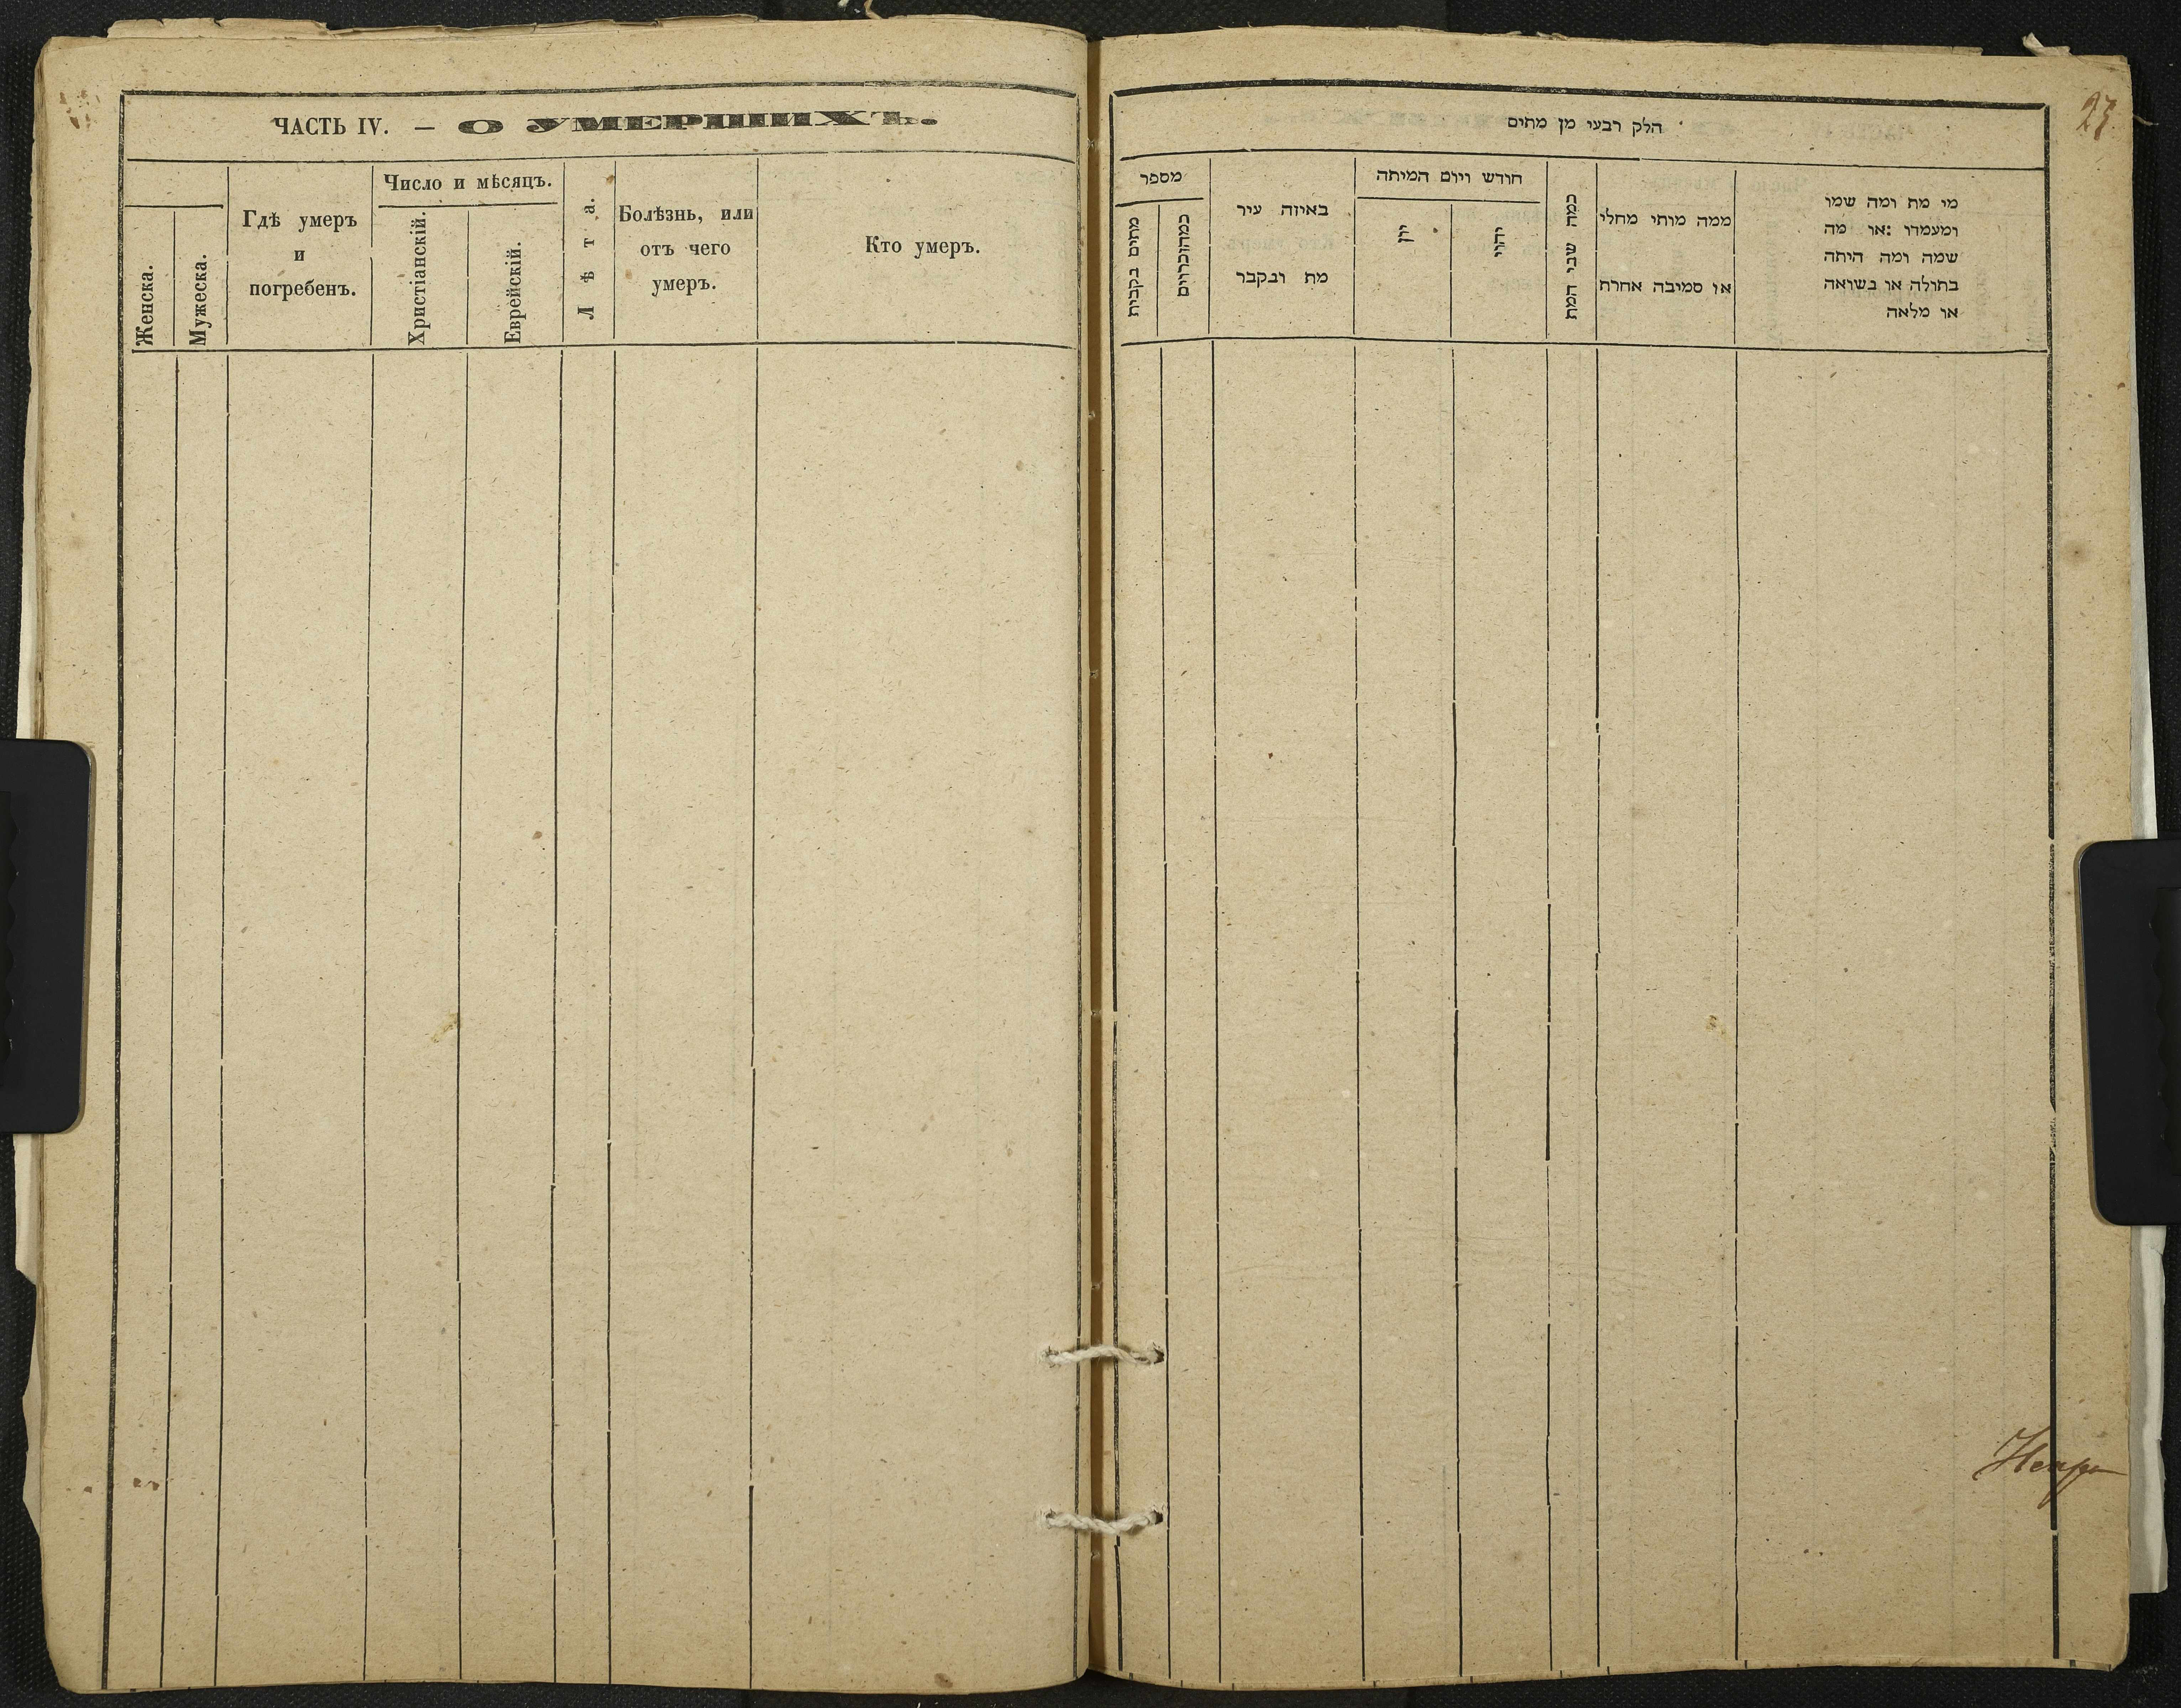 ЧАСТЬ IV. — О УМЕРШИХЪ.
Женска.
Мужеска.
Гдѣ умеръ
и
погребенъ.
Число и мѣсяцъ.
Христіанскій.
Еврейскій.
Лѣта.
Болѣзнь, или
отъ чего
умеръ.
Кто умеръ.
חלק רבעי מן מתים
מספר
באיזה עיר
מת ונקבר
חודש ויום המיתה
יון
יהודי
כמה שני המת
ממה מותי מחלי
או סמיבה אחרת
מי מת ומה שמו
ומעמדו :או מה
שמה ומה היתה
בתולה או נשואה
או מלאה